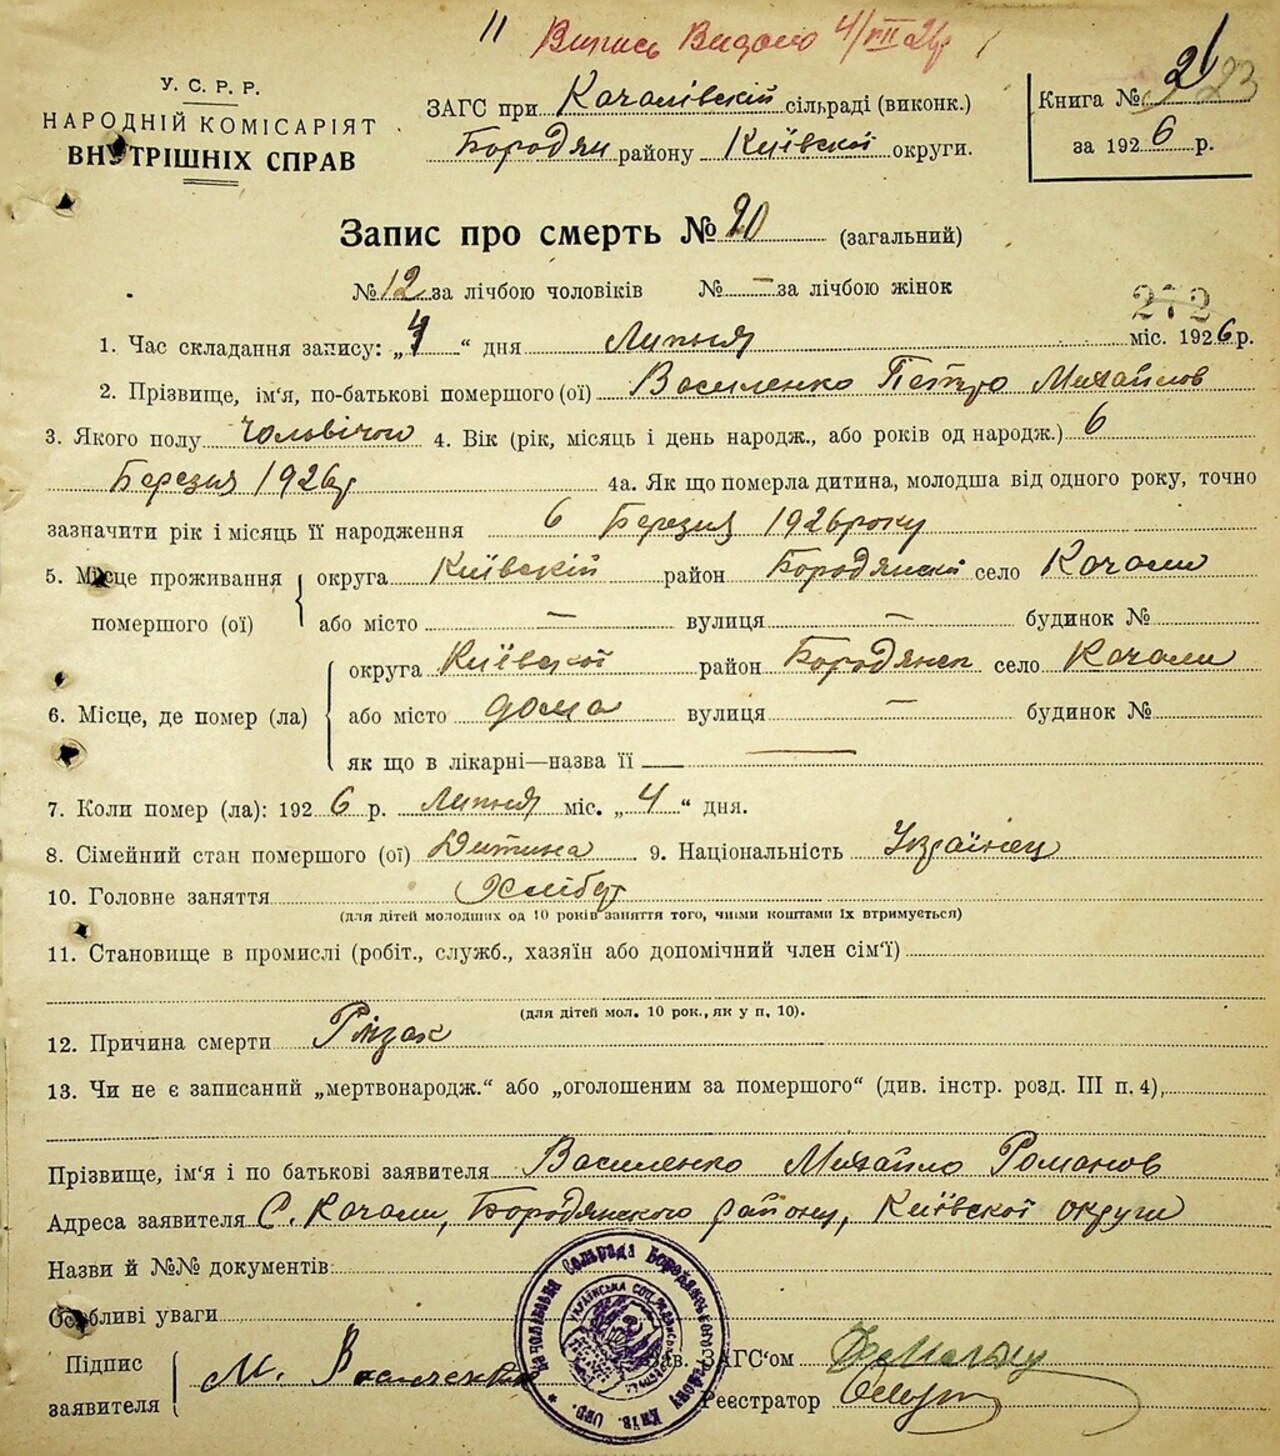 11 Випись Видано 4/VII 26р
У. С. Р. Р.
НАРОДНІЙ КОМІСАРІЯТ
ВНУТРІШНІХ СПРАВ
ЗАГС при Качалівскій сільраді (виконк.)
Бородян району Київскої округи.
Книга № 2
за 1926 р.
21 23
Запис про смерть № 20 (загальний)
№ 12 за лічбою чоловіків № — за лічбою жінок
272
1. Час складання запису: „4“ дня Липня міс. 1926 р.
2. Прізвище, ім‘я, по-батькові помершого (ої) Василенко Петро Михайлов
3. Якого полу Чольвічого 4. Вік (рік, місяць і день народж., або років од народж.) 6
Березня 1926р 4а. Як що померла дитина, молодша від одного року, точно
зазначити рік і місяць її народження 6 Березня 1926 року
5. Місце проживання округа Київскій район Бородянскі село Качали
помершого (ої) або місто — вулиця — будинок №
округа Київскої район Бородянск село Качали
6. Місце, де помер (ла) або місто дома вулиця — будинок №
як що в лікарні—назва її —
7. Коли помер (ла): 1926 р. Липня міс. „4“ дня.
8. Сімейний стан помершого (ої) Дитина 9. Національність Українец
10. Головне заняття Хлібор
(для дітей молодших од 10 років заняття того, чиїми коштами їх втримується)
11. Становище в промислі (робіт., служб., хазяїн або допомічний член сім‘ї)
(для дітей мол. 10 рок., як у п. 10).
12. Причина смерти Різак
13. Чи не є записаний „мертвонародж.“ або „оголошеним за помершого“ (див. інстр. розд. III п. 4),
Прізвище, ім‘я і по батькові заявителя Василенко Михайло Романов
Адреса заявителя С. Качали, Бородянского району, Київскої округи
Назви й №№ документів:
Особливі уваги
Підпис
заявителя
М. Василенко
Зав. ЗАГС‘ом
Реєстратор
Качалівська Сельрада Бородянського району Київ. Окр.
УКРАЇНСЬКА СОЦ. РАДЯНСЬ